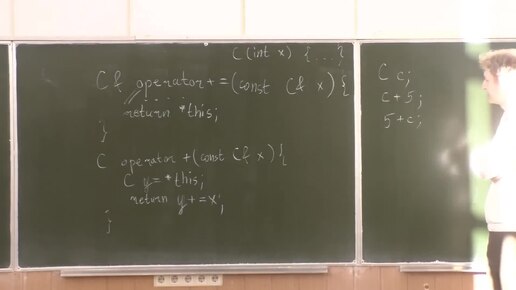 C(int x) {...}
C& operator+=(const C& x){
...
return *this;
}
C operator+(const C& x){
C y=*this;
return y+=x;
}
C c;
c+5;
5+c;